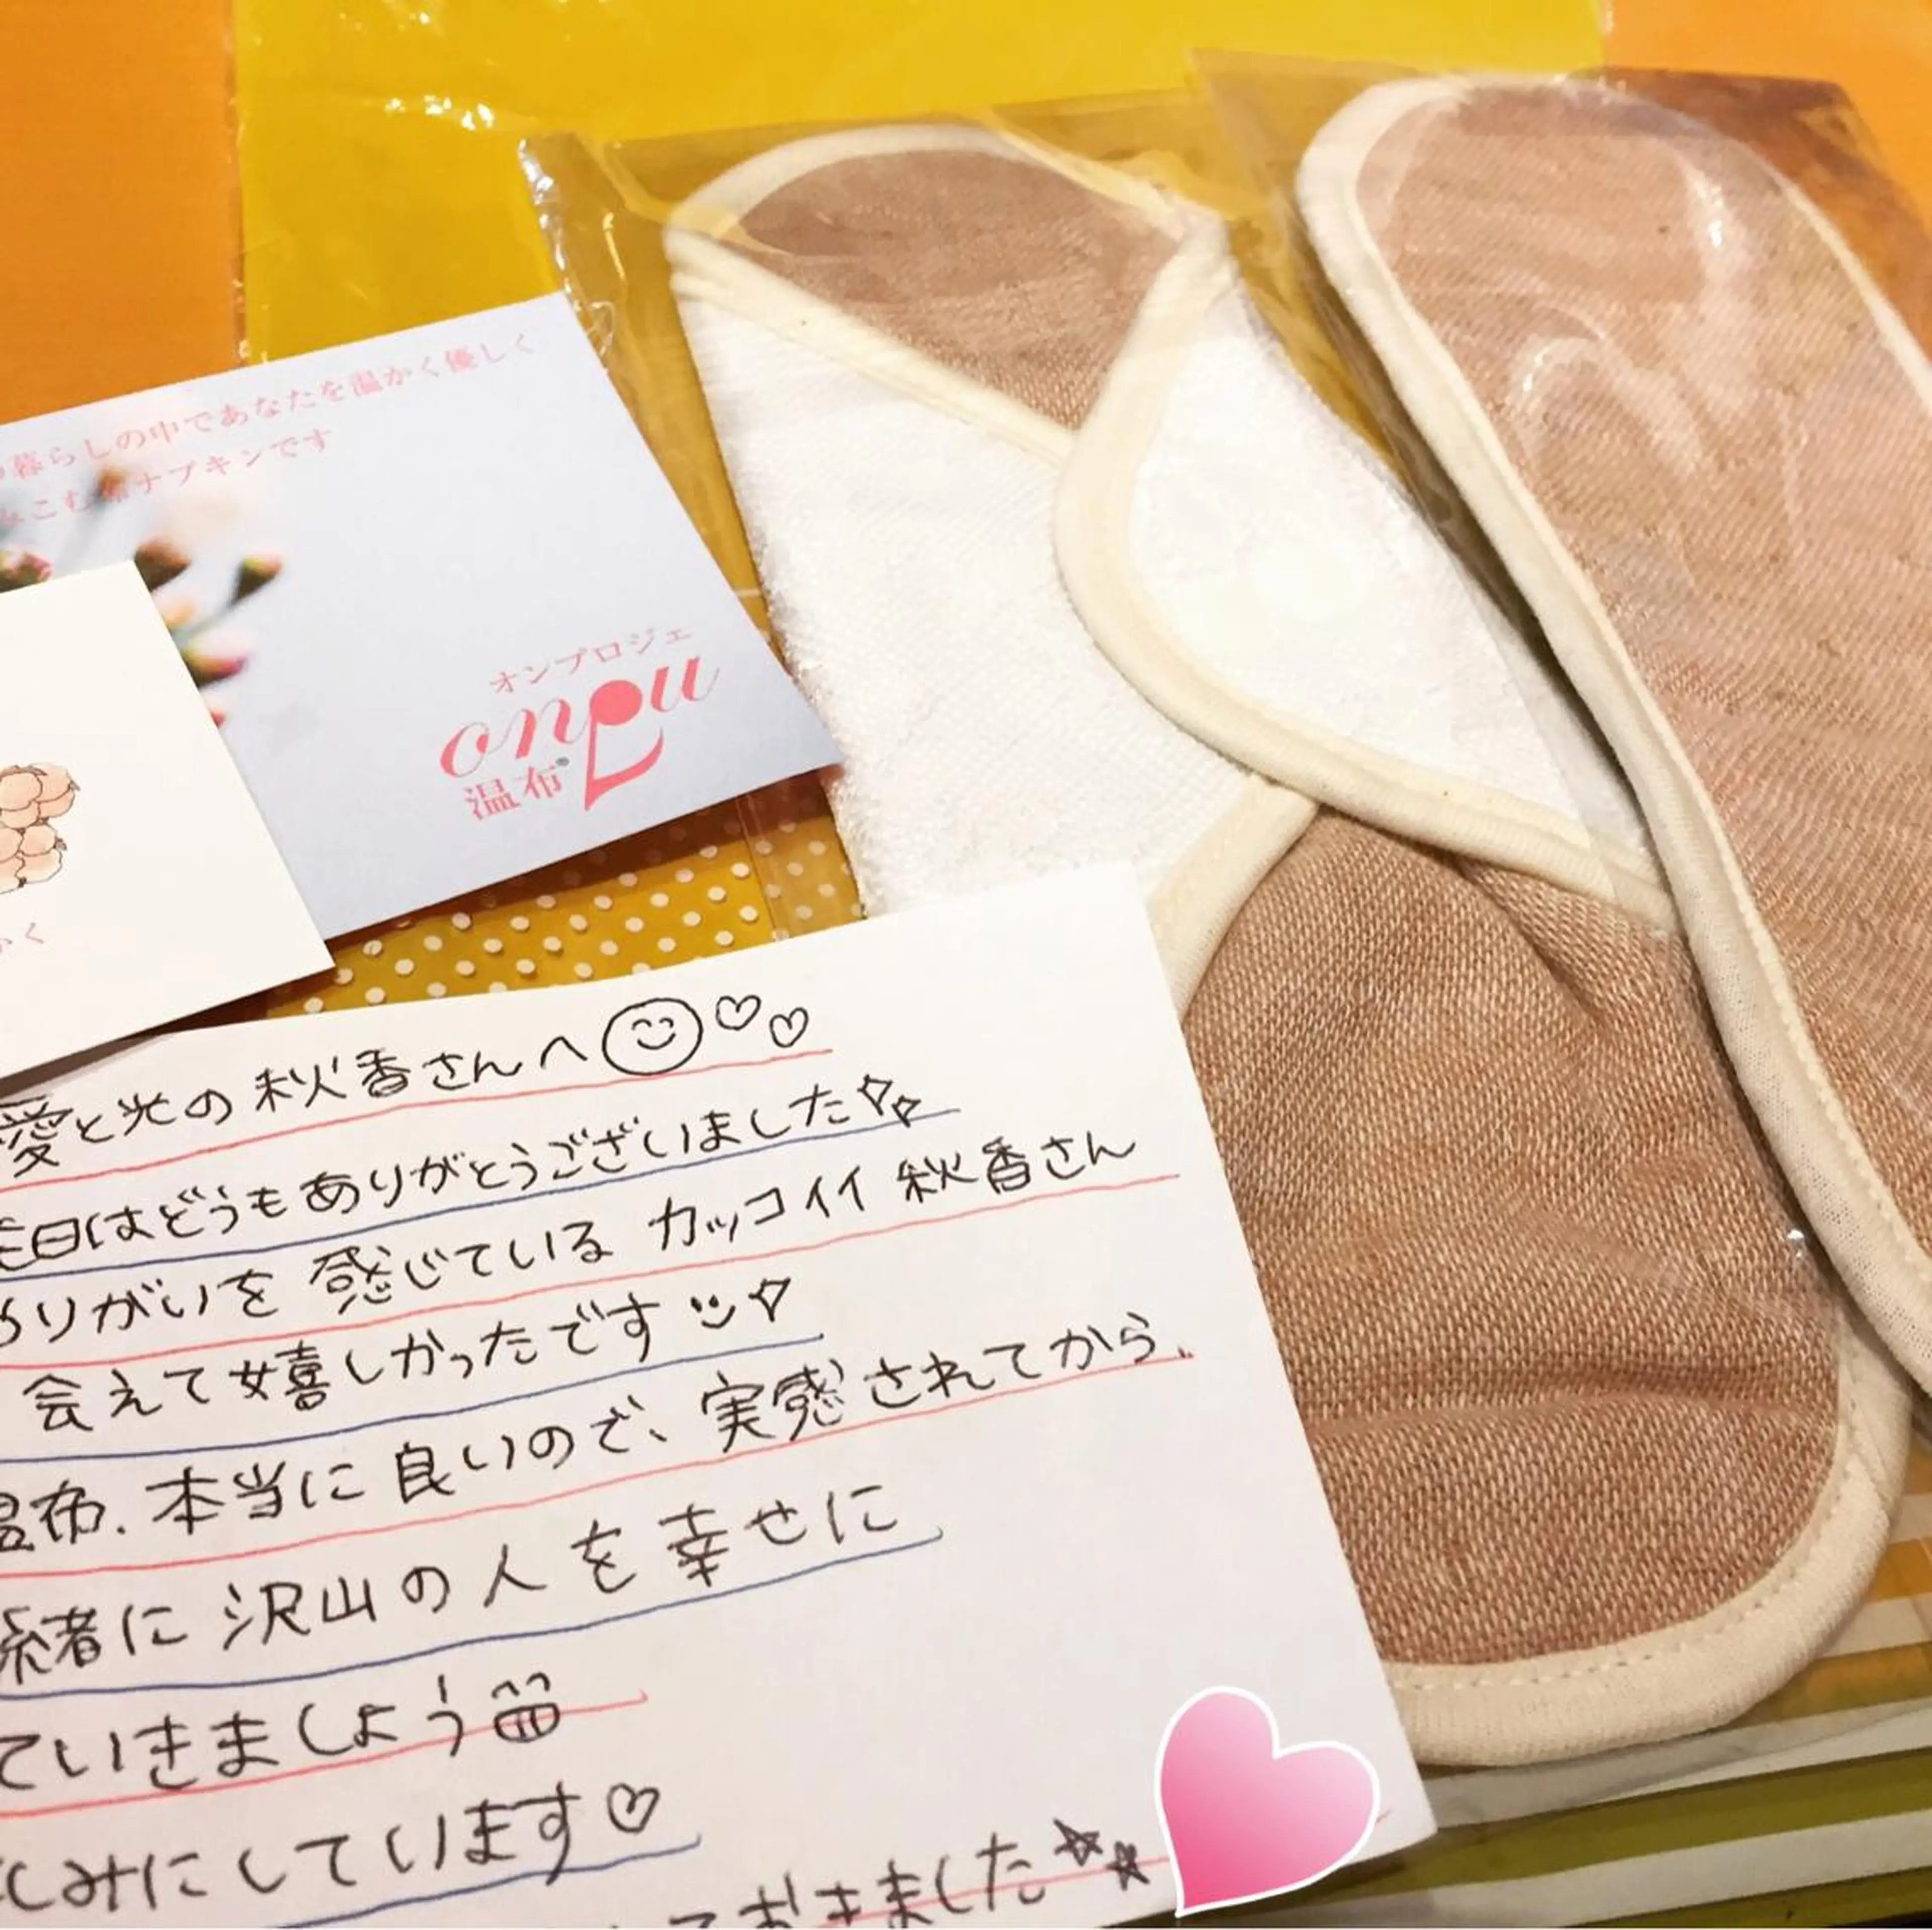 暮らしの中であなたを温かく優しく
こむ布ナプキンです
オンプロジェ
onpu
温布®
かく
愛と光の秋香さんへ
日はどうもありがとうございました
りがいを感じているカッコイイ秋香さん
会えて嬉しかったです
温布.本当に良いので、実感されてから、
緒に沢山の人を幸せに
ていきましょう
しみにしています♡
ておきました